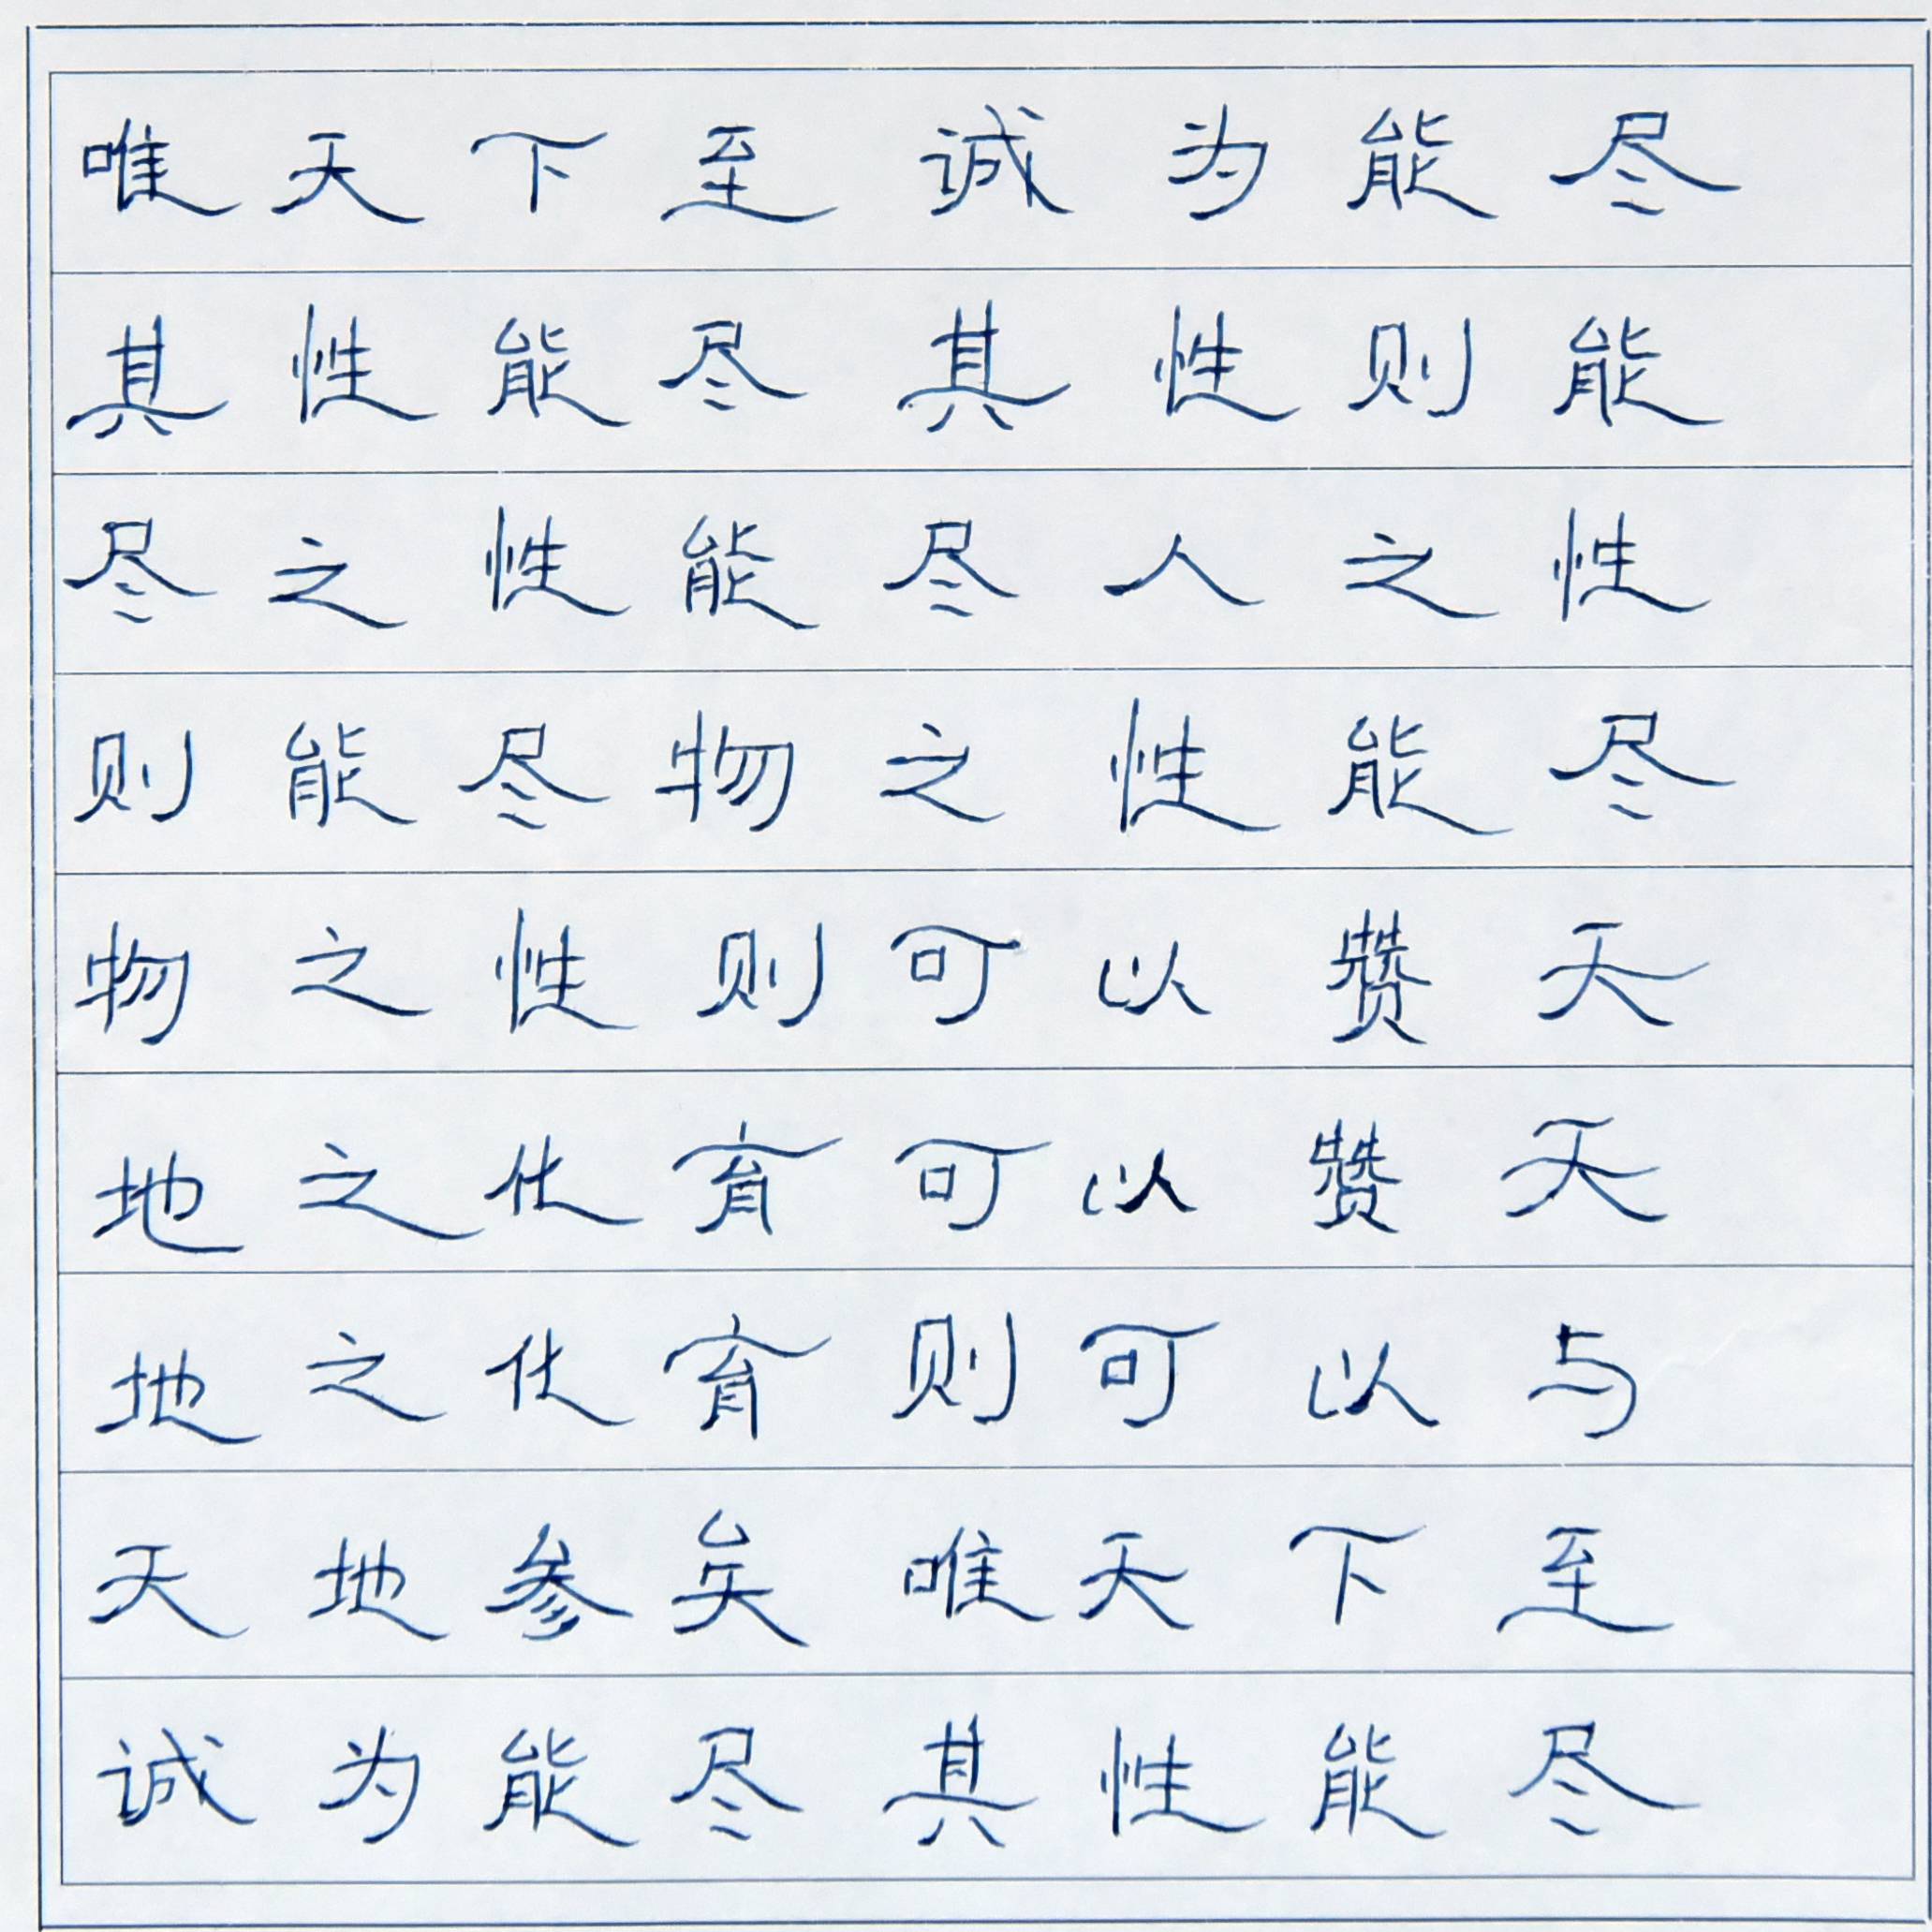 唯天下至诚为能尽
其性能尽其性则能
尽之性能尽人之性
则能尽物之性能尽
物之性则可以赞天
地之化育可以赞天
地之化育则可以与
天地参矣唯天下至
诚为能尽其性能尽